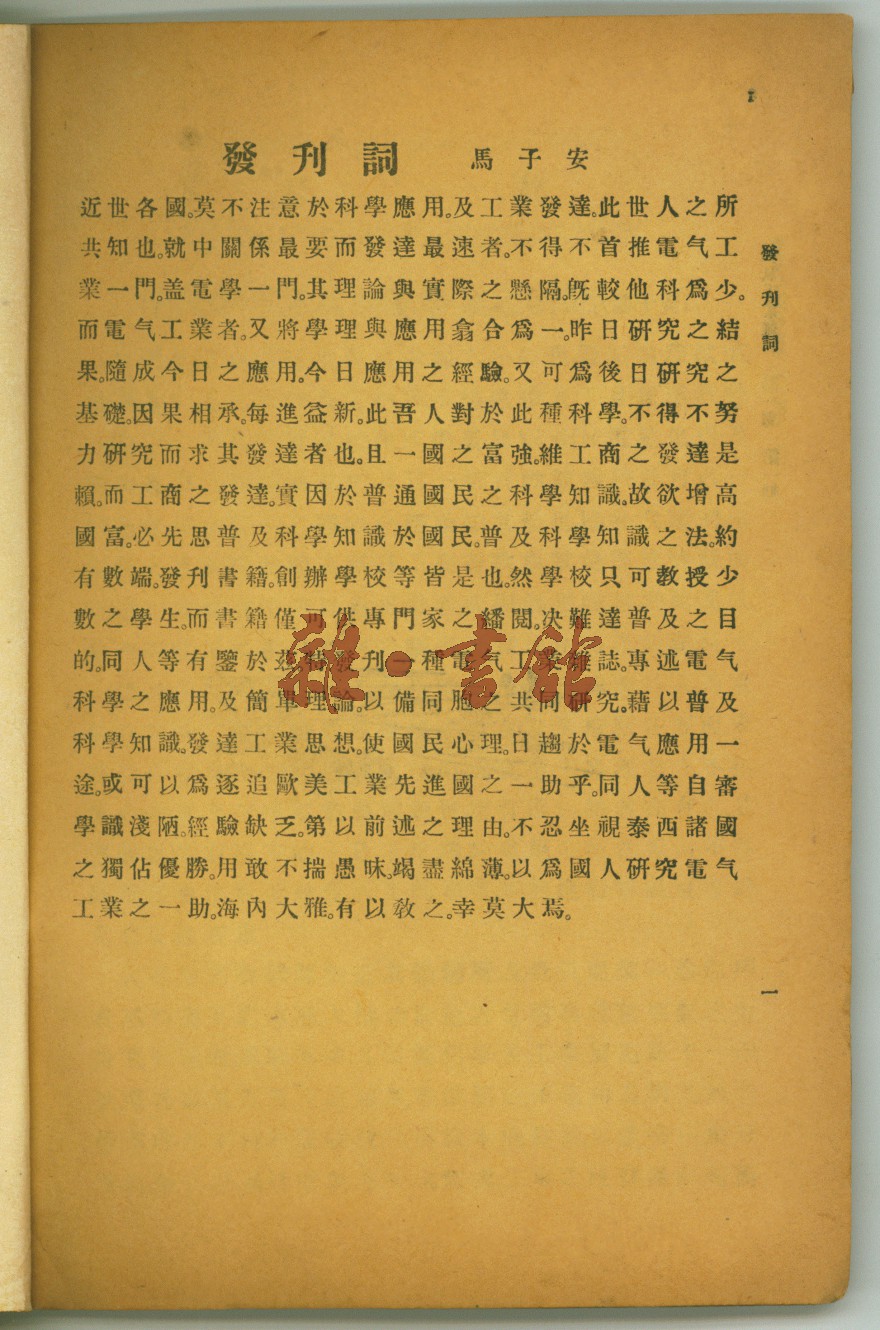 1
發刊詞 馬子安
近世各國。莫不注意於科學應用。及工業發達。此世人之所
共知也。就中關係最要而發達最速者。不得不首推電气工
業一門。盖電學一門。其理論與實際之懸隔。旣較他科爲少。
而電气工業者。又將學理與應用翕合爲一。昨日硏究之結
果。隨成今日之應用。今日應用之經驗。又可爲後日硏究之
基礎。因果相承。每進益新。此吾人對於此種科學。不得不努
力硏究而求其發達者也。且一國之富強。維工商之發達是
賴。而工商之發達。實因於普通國民之科學知識。故欲增高
國富。必先思普及科學知識於國民。普及科學知識之法。約
有數端。發刊書籍。創辦學校等皆是也。然學校只可教授少
數之學生。而書籍僅可供專門家之繙閱。决難達普及之目
的。同人等有鑒於茲。特發刊一種電气工業雜誌。專述電气
科學之應用。及簡單理論。以備同胞之共同硏究。藉以普及
科學知識。發達工業思想。使國民心理。日趨於電气應用一
途。或可以爲逐追歐美工業先進國之一助乎。同人等自審
學識淺陋。經驗缺乏。第以前述之理由。不忍坐視泰西諸國
之獨佔優勝。用敢不揣愚昧。竭盡綿薄。以爲國人硏究電气
工業之一助。海內大雅。有以敎之。幸莫大焉。
發刊詞
一
雜·書館